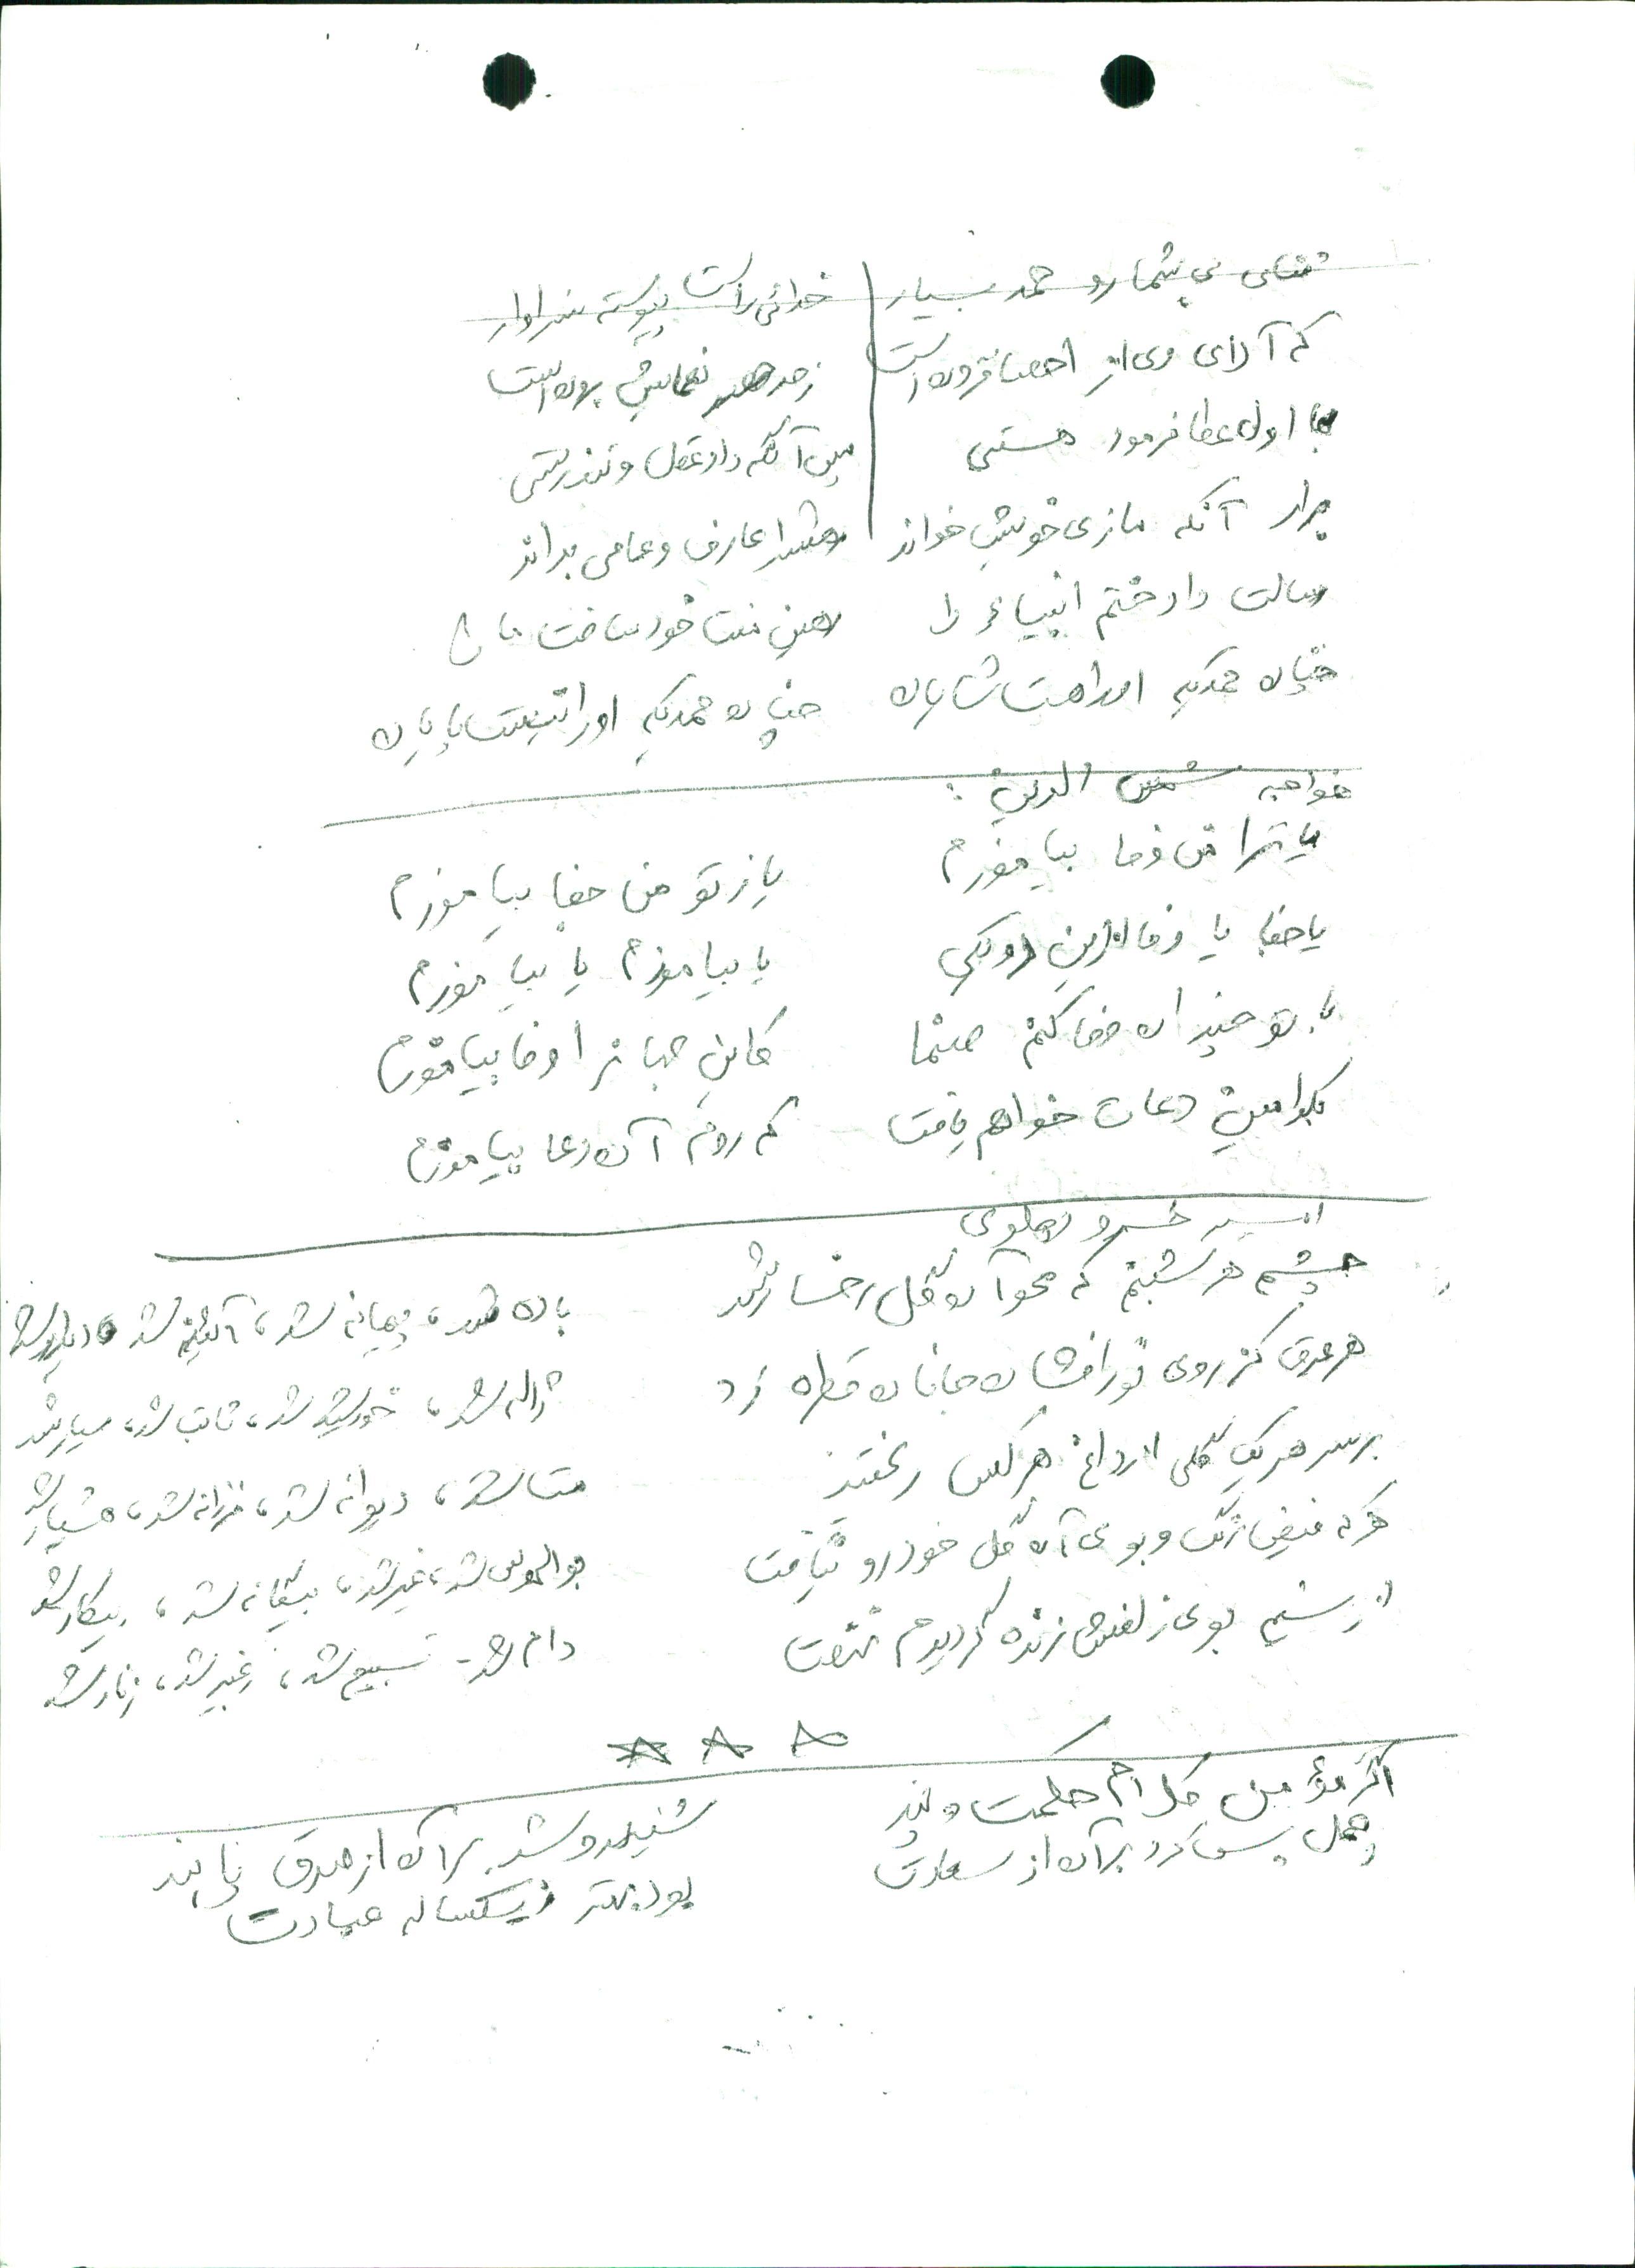 ثنای بی شمار و حمد بسیار خدائی راست پیوسته سزاوار
که آلای وی از احصا فزون است ز حد و حصر نعمایش برون است
بما اول عطا فرمود هستی پس آنگه داد عقل و تندرستی
پرار آنکه مازی خویش خواند عارف و عامی بداند
رسالت داد ختم انبیاء را رهین منت خود ساخت ما را
چنان حمدیکه او را هست شایان چنان حمدیکه او را نیست پایان
خواجه شمس الدین :
یا ترا من وفا بیاموزم یا ز تو من جفا بیاموزم
یا جفا یا وفا ازین دو یکی یا بیاموزم یا بیاموزم
با تو چندان وفا کنم صنما کاین جهانرا وفا بیاموزم
بکدامین دعات خواهم یافت که روم آن دعا بیاموزم
امیر خسرو دهلوی
چشم هر شبنم که محو آن گل رخسار شد باده شد، پیمانه شد، آئینه شد، دیدار شد
هر عرق کز روی نور افشان جانان قطره زد ژاله شد، خورشید شد، ثابت شد، سیار شد
بر سر هر یک گلی از داغ هر کس ریختند مست شد، دیوانه شد، فرزانه شد، هشیار شد
هر که فیض رنگ و بوی آن گل خودرو نیافت بوالهوس شد، غیر شد، بیگانه شد، بیکار شد
از نسیم بوی زلفش زنده گردیدم دام شد، تسبیح شد، زنجیر شد، زنار شد
اگر مؤمن کلام حکمت و پند شنید و شد بر آن از صدق پابند
عمل پس کرد بر آن از سعادت بود بهتر ز یکساله عبادت